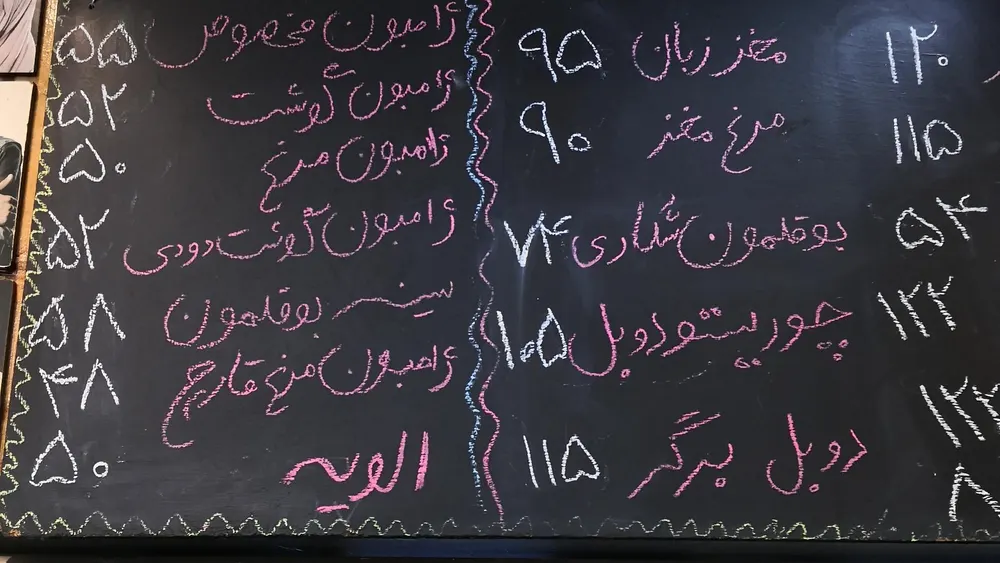 ۱۲۰
۱۱۵
۵۴
۱۲۲
مغز زبان ۹۵
مرغ مغز ۹۰
بوقلمون شکاری ۷۴
چوریستو دوبل ۱۰۵
دوبل برگر ۱۱۵
ژامبون مخصوص ۵۵
ژامبون گوشت ۵۲
ژامبون مرغ ۵۰
ژامبون گوشت دودی ۵۲
سینه بوقلمون ۵۸
ژامبون مرغ قارچ ۴۸
الویه ۵۰